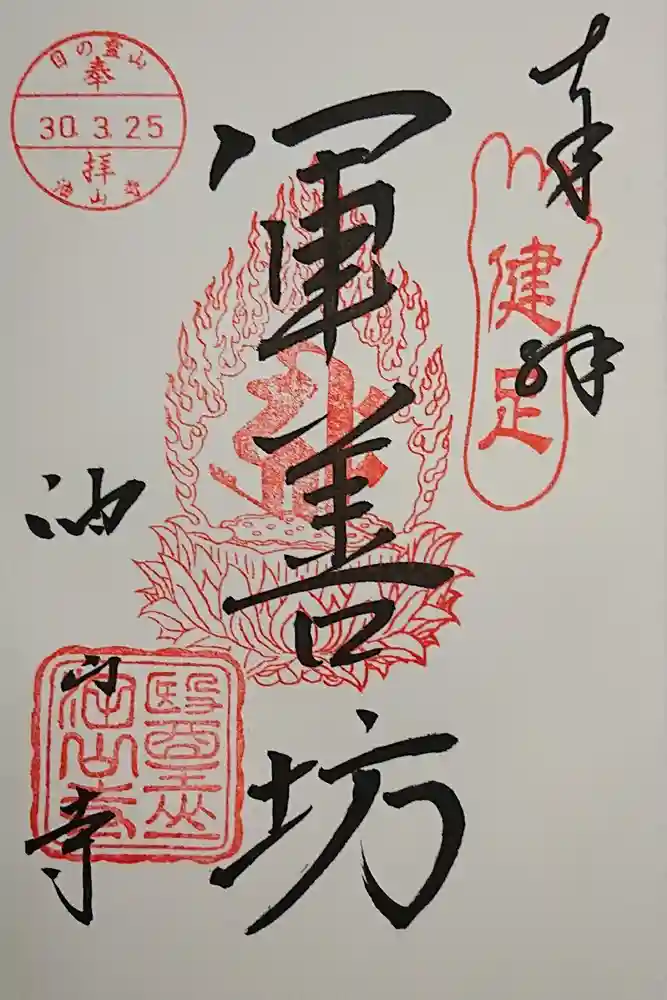 奉拝
健足
軍善坊
目の霊山
奉
30.3.25
拝
油山寺
油山寺
醫王山
油山寺